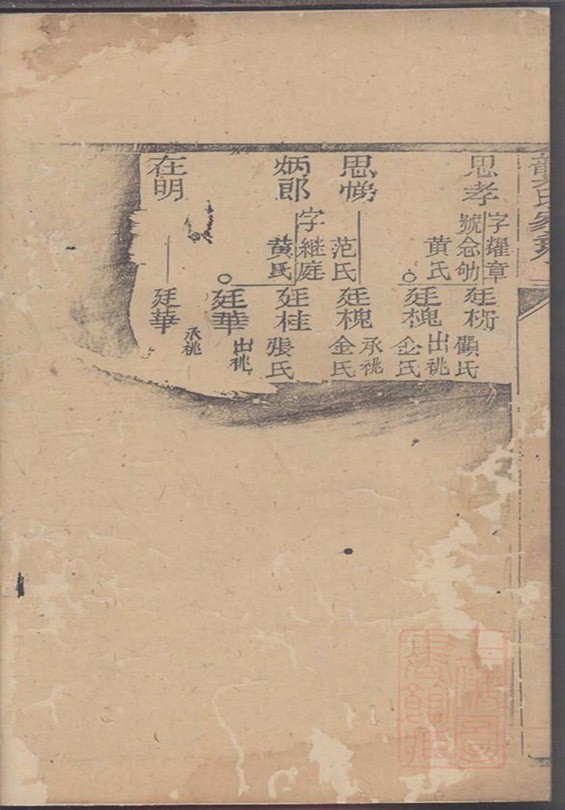 氏家
思孝
字耀章
號念劬
黃氏
思
范氏
炳郎
字繼庭
黃氏
在明
廷
顧氏
廷槐
出祧
金氏
廷槐
承祧
金氏
廷桂
張氏
廷華
出祧
廷華
承祧